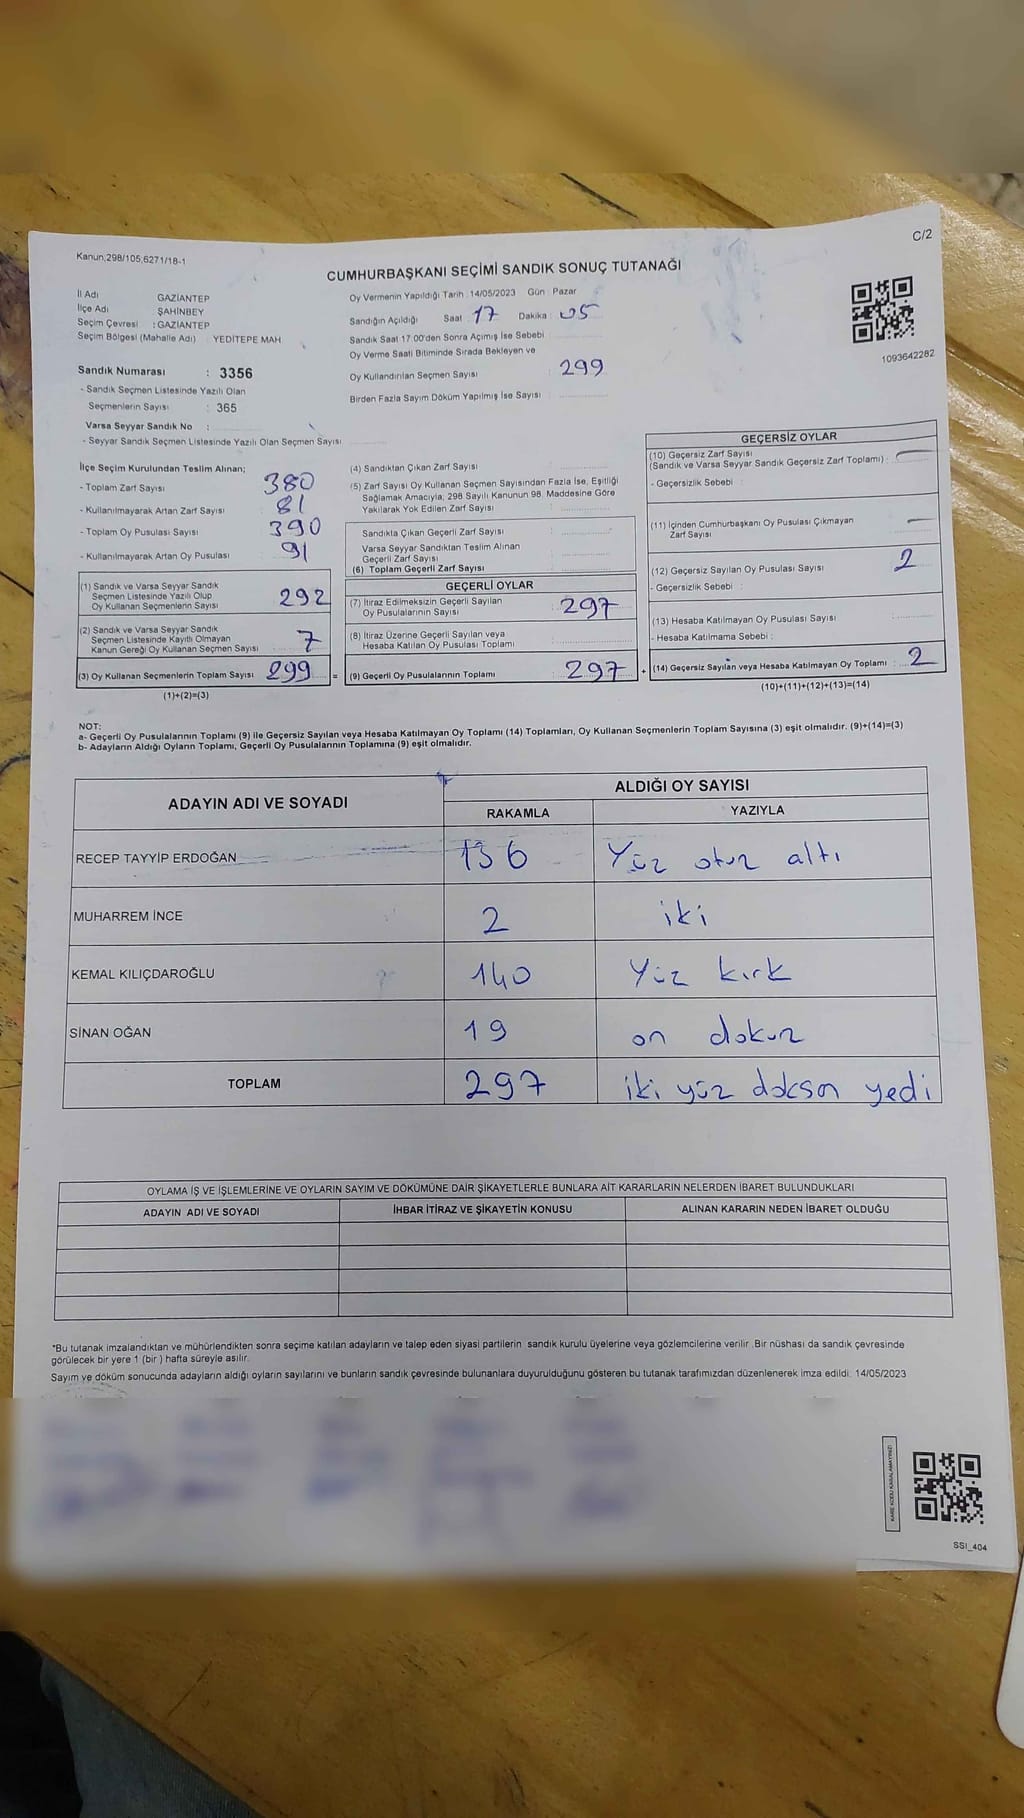 C/2
Kanun;298/105,6271/18-1
CUMHURBAŞKANI SEÇİMİ SANDIK SONUÇ TUTANAĞI
İl Adı GAZİANTEP
İlçe Adı ŞAHİNBEY
Seçim Çevresi : GAZİANTEP
Seçim Bölgesi (Mahalle Adı) YEDİTEPE MAH
Sandık Numarası : 3356
- Sandık Seçmen Listesinde Yazılı Olan
Seçmenlerin Sayısı : 365
Varsa Seyyar Sandık No :
- Seyyar Sandık Seçmen Listesinde Yazılı Olan Seçmen Sayısı
Oy Vermenin Yapıldığı Tarih : 14/05/2023 Gün : Pazar
Sandığın Açıldığı Saat 17 Dakika : 05
Sandık Saat 17.00'den Sonra Açımış İse Sebebi
Oy Verme Saati Bitiminde Sırada Bekleyen ve
Oy Kullandırılan Seçmen Sayısı : 299
Birden Fazla Sayım Döküm Yapılmış İse Sayısı :
1093642282
İlçe Seçim Kurulundan Teslim Alınan;
- Toplam Zarf Sayısı 380
- Kullanılmayarak Artan Zarf Sayısı 81
- Toplam Oy Pusulası Sayısı 390
- Kullanılmayarak Artan Oy Pusulası 91
(1) Sandık ve Varsa Seyyar Sandık
Seçmen Listesinde Yazılı Olup
Oy Kullanan Seçmenlerin Sayısı 292
(2) Sandık ve Varsa Seyyar Sandık
Seçmen Listesinde Kayıtlı Olmayan
Kanun Gereği Oy Kullanan Seçmen Sayısı 7
(3) Oy Kullanan Seçmenlerin Toplam Sayısı 299 =
(1)+(2)=(3)
(4) Sandıktan Çıkan Zarf Sayısı
(5) Zarf Sayısı Oy Kullanan Seçmen Sayısından Fazla İse, Eşitliği
Sağlamak Amacıyla; 298 Sayılı Kanunun 98. Maddesine Göre
Yakılarak Yok Edilen Zarf Sayısı
Sandıkta Çıkan Geçerli Zarf Sayısı
Varsa Seyyar Sandıktan Teslim Alınan
Geçerli Zarf Sayısı
(6) Toplam Geçerli Zarf Sayısı
GEÇERLİ OYLAR
(7) İtiraz Edilmeksizin Geçerli Sayılan
Oy Pusulalarının Sayısı : 297
(8) İtiraz Üzerine Geçerli Sayılan veya
Hesaba Katılan Oy Pusulası Toplamı
(9) Geçerli Oy Pusulalarının Toplamı 297 +
GEÇERSİZ OYLAR
(10) Geçersiz Zarf Sayısı
(Sandık ve Varsa Seyyar Sandık Geçersiz Zarf Toplamı) : —
- Geçersizlik Sebebi :
(11) İçinden Cumhurbaşkanı Oy Pusulası Çıkmayan
Zarf Sayısı —
(12) Geçersiz Sayılan Oy Pusulası Sayısı 2
- Geçersizlik Sebebi :
(13) Hesaba Katılmayan Oy Pusulası Sayısı :
- Hesaba Katılmama Sebebi :
(14) Geçersiz Sayılan veya Hesaba Katılmayan Oy Toplamı : 2
(10)+(11)+(12)+(13)=(14)
NOT:
a- Geçerli Oy Pusulalarının Toplamı (9) ile Geçersiz Sayılan veya Hesaba Katılmayan Oy Toplamı (14) Toplamları, Oy Kullanan Seçmenlerin Toplam Sayısına (3) eşit olmalıdır. (9)+(14)=(3)
b- Adayların Aldığı Oyların Toplamı, Geçerli Oy Pusulalarının Toplamına (9) eşit olmalıdır.
ADAYIN ADI VE SOYADI ALDIĞI OY SAYISI
RAKAMLA YAZIYLA
RECEP TAYYİP ERDOĞAN 136 Yüz otuz altı
MUHARREM İNCE 2 iki
KEMAL KILIÇDAROĞLU 140 Yüz kırk
SİNAN OĞAN 19 on dokuz
TOPLAM 297 iki yüz doksan yedi
OYLAMA İŞ VE İŞLEMLERİNE VE OYLARIN SAYIM VE DÖKÜMÜNE DAİR ŞİKAYETLERLE BUNLARA AİT KARARLARIN NELERDEN İBARET BULUNDUKLARI
ADAYIN ADI VE SOYADI İHBAR İTİRAZ VE ŞİKAYETİN KONUSU ALINAN KARARIN NEDEN İBARET OLDUĞU
*Bu tutanak imzalandıktan ve mühürlendikten sonra seçime katılan adayların ve talep eden siyasi partilerin sandık kurulu üyelerine veya gözlemcilerine verilir. Bir nüshası da sandık çevresinde
görülecek bir yere 1 (bir ) hafta süreyle asılır.
Sayım ve döküm sonucunda adayların aldığı oyların sayılarını ve bunların sandık çevresinde bulunanlara duyurulduğunu gösteren bu tutanak tarafımızdan düzenlenerek imza edildi. 14/05/2023
KARE KODU KARALAMAYINIZ!
SSI_404